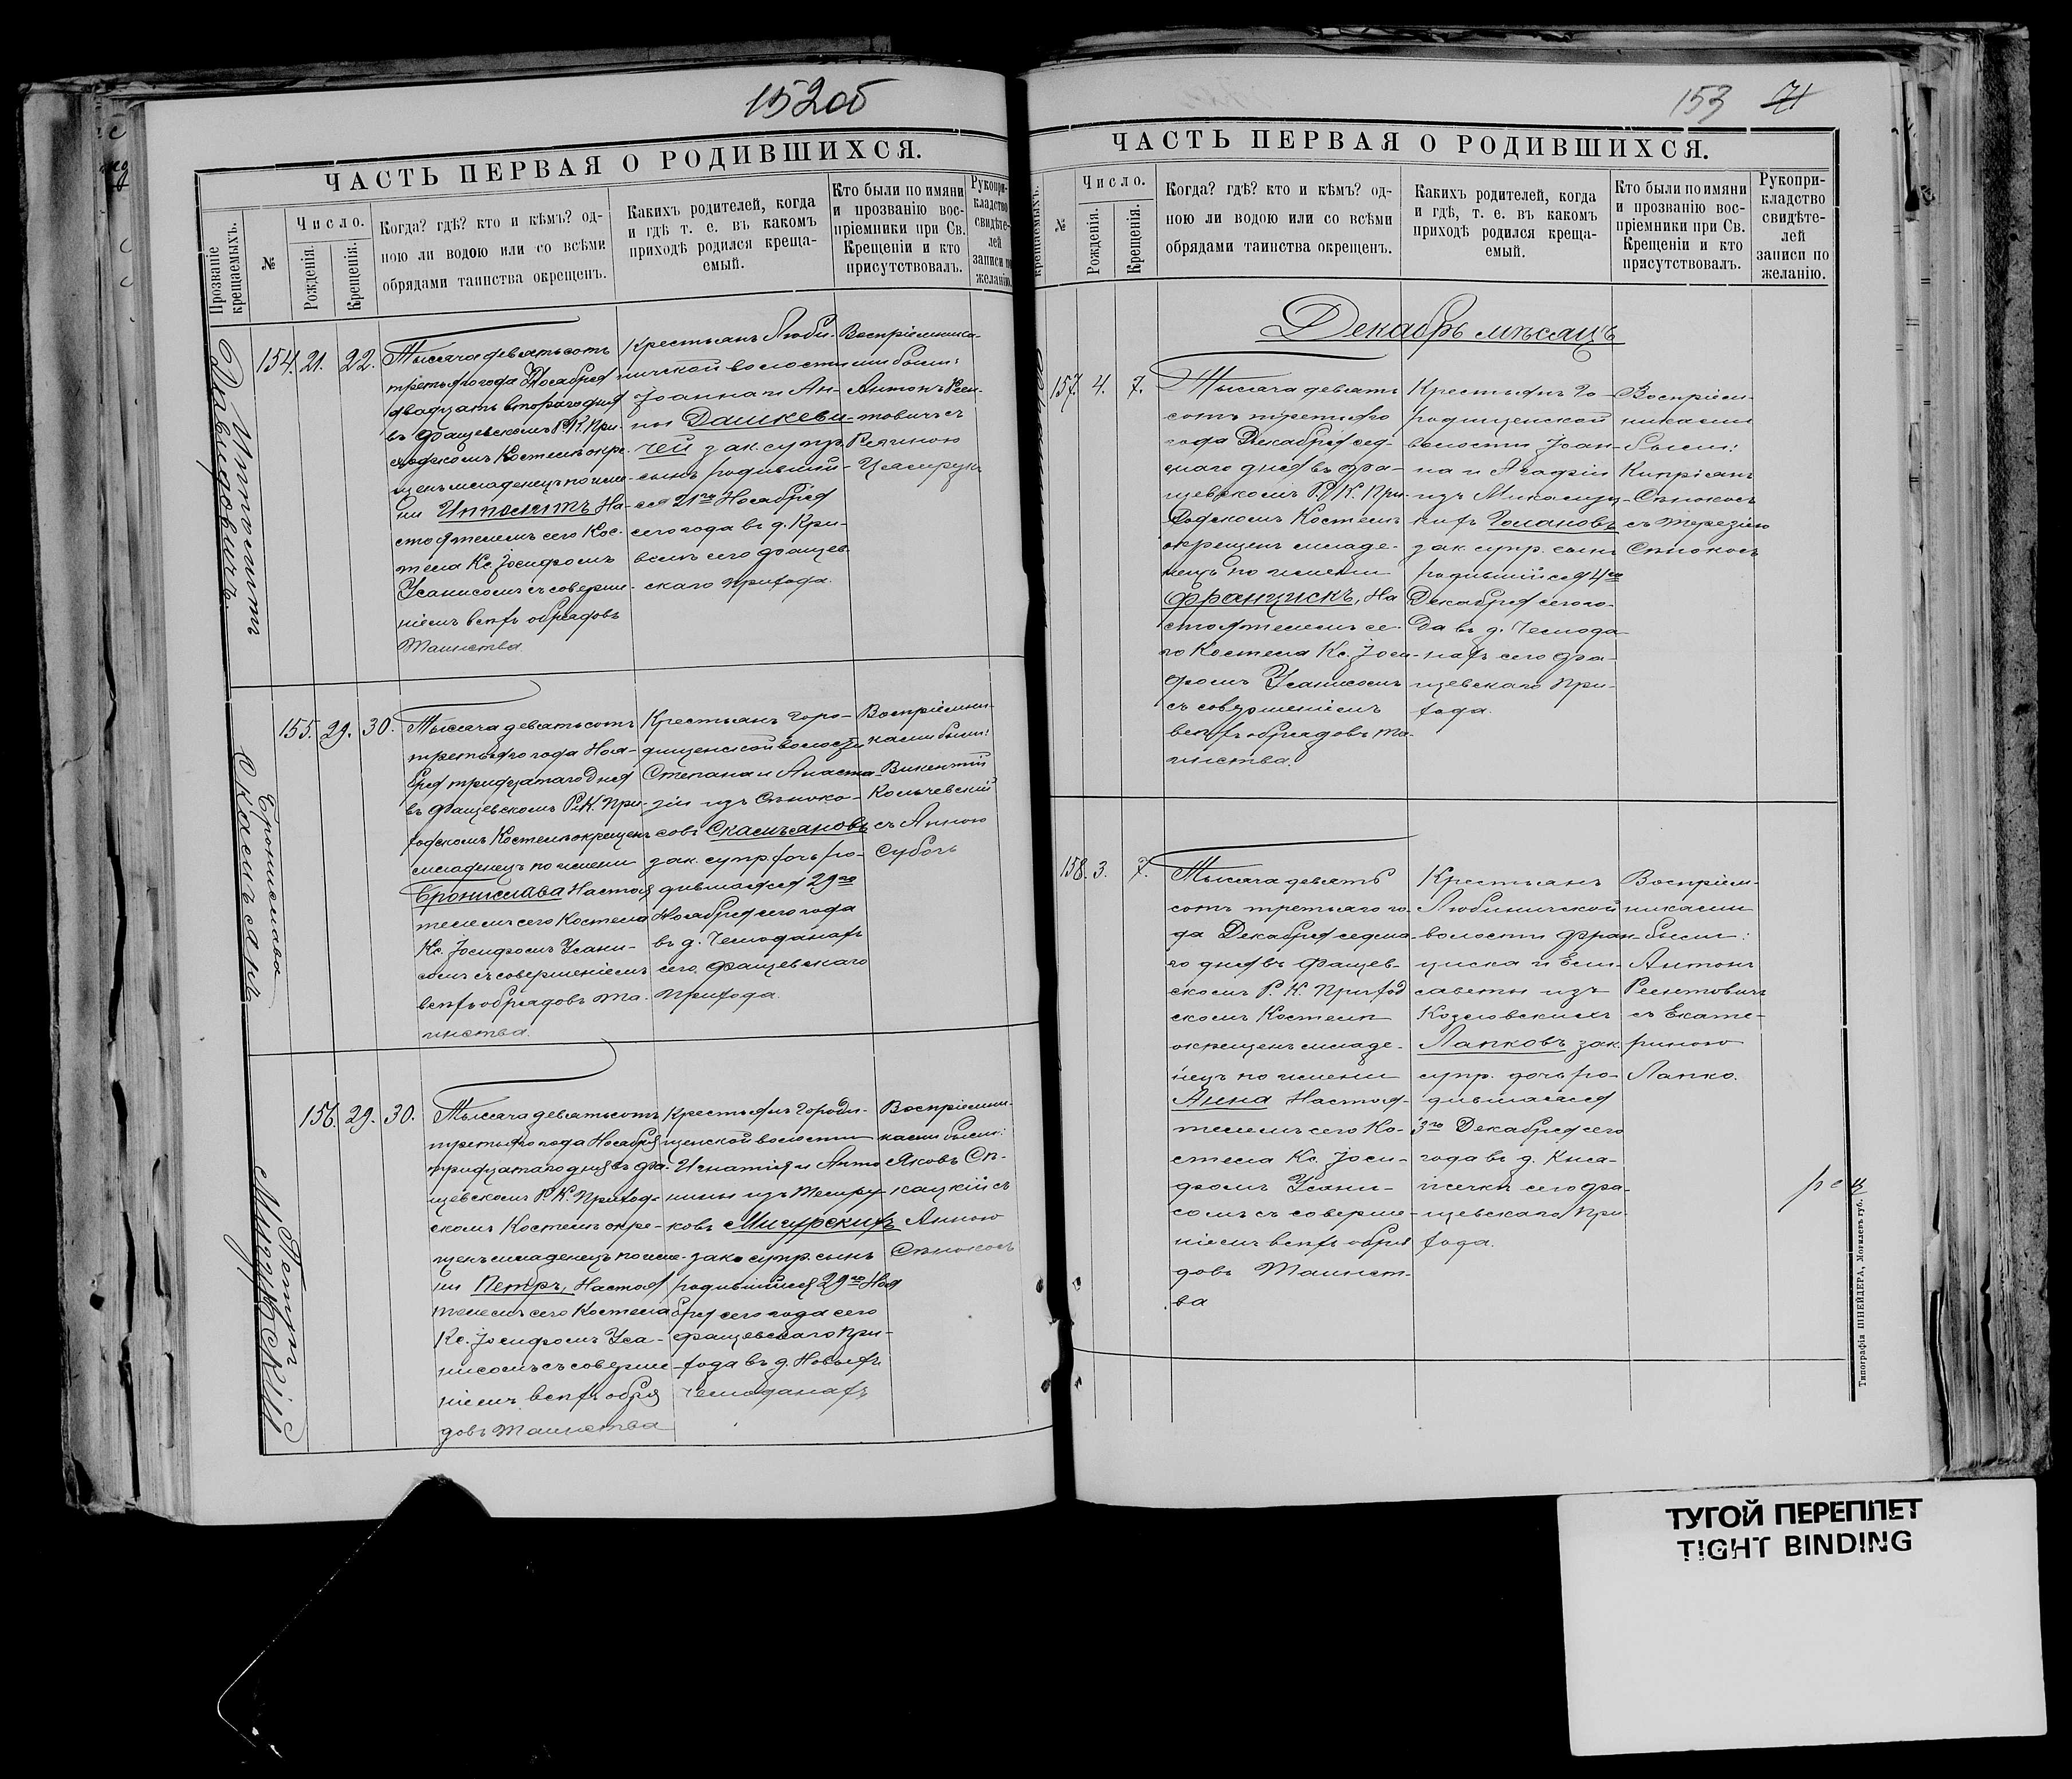 152об
ЧАСТЬ ПЕРВАЯ О РОДИВШИХСЯ.
Прозваніе крещаемыхъ.
№
Число.
Рожденія.
Крещенія.
Когда? гдѣ? кто и кѣмъ? од-
ною ли водою или со всѣми
обрядами таинства окрещенъ.
Какихъ родителей, когда
и гдѣ т. е. въ какомъ
приходѣ родился креща-
емый.
Кто были по имяни
и прозванію вос-
пріемники при Св.
Крещеніи и кто
присутствовалъ.
Рукопри-
кладство
свидѣте-
лей
записи по
желанію.
Ипполитъ
154. 21. 22.
Тысяча девятьсотъ
третьяго года Ноября
двадцать втораго дня
въ Фащевскомъ Р. К. При-
ходскомъ Костелѣ окре-
щенъ младенецъ по име-
ни Ипполитъ На-
стоятелемъ сего Кос-
тела Кс. Іосифомъ
Усанисомъ съ соверше-
ніемъ всѣхъ обрядовъ
Таинства.
Крестьянъ Люби-
ничской волости
Іоанна и Ан-
ны Дашкеви-
чей зак. супр.
сынъ родивший-
ся 21го Ноября
сего года въ д. Кри-
сего Фащев-
скаго Прихода.
Воспріемника-
ми были:
Антонъ Рен-
товичъ съ
Бронислава
155. 29. 30.
Тысяча девятьсотъ
третьяго года Ноя-
бря тридцатаго дня
въ Фащевскомъ Р. К. При-
ходскомъ Костелѣ окрещенъ
младенецъ по имени
Бронислава Настоя
телемъ сего Костела
Кс. Іосифомъ Усани-
сомъ съ совершеніемъ
всѣхъ обрядовъ Та-
инства.
Крестьянъ Горо-
дищенской волости
Степана и Анаста-
зіи изъ Сѣноко-
совъ Скасиъяновъ
зак. супр. дочь ро-
дившаяся 29го
Ноября сего года
въ д. Чемоданахъ
сего Фащевскаго
Прихода.
Воспріемни-
ками были:
Викентій
Кольчевскій
съ Анною
Суботъ
Петръ
156. 29. 30.
Тысяча девятьсотъ
третьяго года Ноября
тридцатаго дня въ Фа-
щевскомъ Р. К. Приход-
скомъ Костелѣ окре-
щенъ младенецъ по име-
ни Петръ, Настоя
телемъ сего Костела
Кс. Іосифомъ Уса-
нисомъ съ соверше-
ніемъ всѣхъ обря
довъ Таинства
Крестьянъ Городи-
щенской волости
Игнатія и Анто
нины изъ Темру-
ковъ Мигурскихъ
зако супр. сынъ
родившійся 29го Ноя
бря сего года сего
Фащевскаго При-
хода въ д. Новыхъ
Чемоданахъ
Воспріемни-
ками были:
Яковъ Сѣ-
кацкій съ
Анною
Сѣнокосъ
153 71
ЧАСТЬ ПЕРВАЯ О РОДИВШИХСЯ.
крещаемыхъ.
№
Число.
Рожденія.
Крещенія.
Когда? гдѣ? кто и кѣмъ? од-
ною ли водою или со всѣми
обрядами таинства окрещенъ.
Какихъ родителей, когда
и гдѣ, т. е. въ какомъ
приходѣ родился креща-
емый.
Кто были по имяни
и прозванію вос-
пріемники при Св.
Крещеніи и кто
присутствовалъ.
Рукопри-
кладство
свидѣте-
лей
записи по
желанію.
Декабрь мѣсяцъ
157. 4. 7.
Тысяча девять
сотъ третьяго
года Декабря сед-
маго дня въ Фа-
щевскомъ Р. К. При-
ходскомъ Костелѣ
окрещенъ младе-
нецъ по имени
Францискъ, На
стоятелемъ се-
го Костела Кс. Іоси-
фомъ Усанисомъ
съ совершеніемъ
всѣхъ обрядовъ Та-
инства.
Крестьянъ Го-
родищенской
волости Іоан-
на и Агафіи
зак. супр. сынъ
родившійся 4го
Декабря сего го-
да въ д. Чемода-
нахъ сего Фа-
щевскаго При-
хода.
Воспріем-
никами
были:
Кипріанъ
Сѣнокосъ
съ Терезіею
Сѣнокосъ
158. 3. 7.
Тысяча девять
сотъ третьяго го-
да Декабря седма-
го дня въ Фащев-
скомъ Р. К. Приход
скомъ Костелѣ
окрещенъ младе-
нецъ по имени
Анна Настоя-
телемъ сего Ко-
стела Кс. Іоси-
фомъ Усани-
сомъ съ соверше-
ніемъ всѣхъ обря
довъ Таинст-
ва
Крестьянъ
Любиничской
волости Фран-
циска и Ели-
саветы изъ
Козловскихъ
Лапковъ зак.
супр. дочь ро-
дившаяся
3го Декабря сего
года въ д.
сего Фа-
щевскаго При-
хода.
Воспріем-
никами
были:
Антонъ
Рентовичъ
съ Екате-
риною
Лапко.
Типографія ШНЕЙДЕРА, Могилевъ губ.
ТУГОЙ ПЕРЕПЛЕТ
TIGHT BINDING